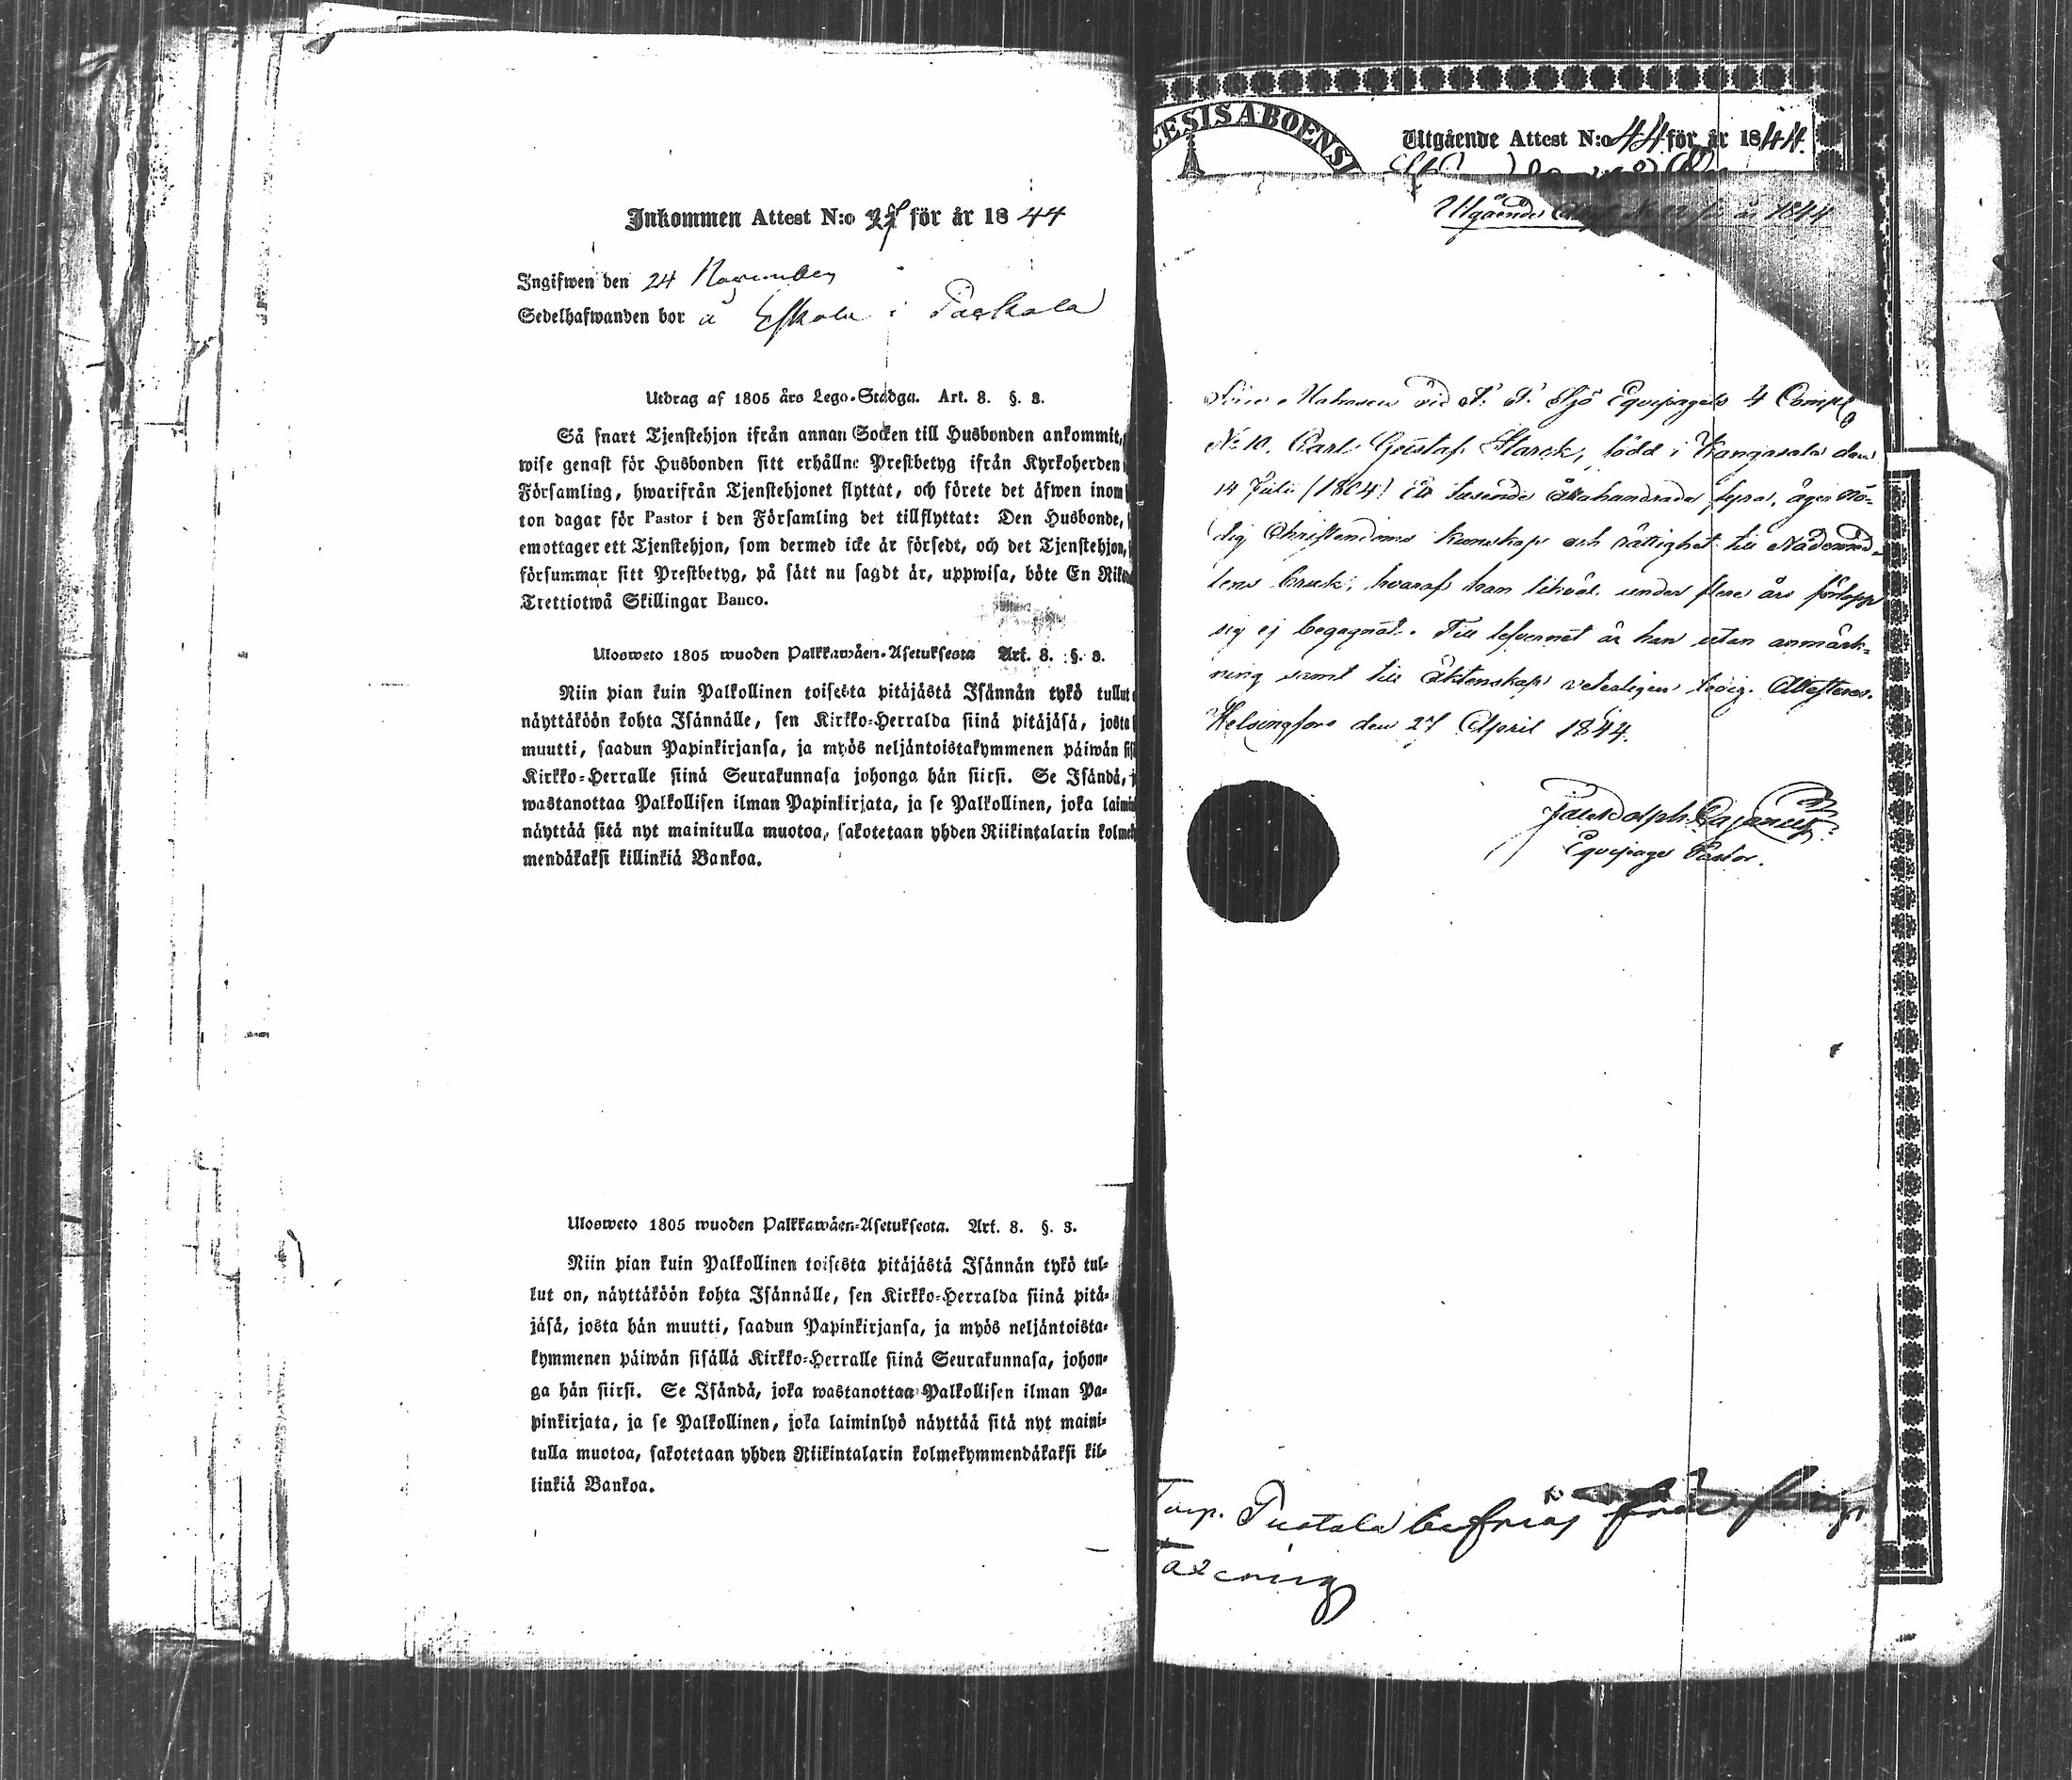 Inkommen Attest N:o 27 för år 1844
Ingifwen den 24 November
Sedelhafwanden bor å Eskola i Paskala
Utdrag af 1805 års Lego-Stadga. Art. 8. §. 8.
Så snart Tjenstehjon ifrån annan Socken till Husbonden ankommit,
wise genast för Husbonden sitt erhållne Prestbetyg ifrån Kyrkoherden
Församling, hwarifrån Tjenstehjonet flyttat, och förete det äfwen inom
ton dagar för Pastor i den Församling det tillflyttat: Den Husbonde,
emottager ett Tjenstehjon, som dermed icke är försedt, och det Tjenstehjon,
försummar sitt Prestbetyg, på sätt nu sagdt är, uppwisa, böte En
Trettiotwå Skillingar Banco.
Ulosweto 1805 wuoden Palkkawäen-Asetuksesta Art. 8. §. 8.
Niin pian kuin Palkollinen toisesta pitäjästä Isännän tykö tullut
näyttäköön kohta Isännälle, sen Kirkko-Herralda siinä pitäjäsä, josta
muutti, saadun Papinkirjansa, ja myös neljäntoistakymmenen päiwän
Kirkko-Herralle siinä Seurakunnasa johonga hän siirsi. Se Isändä,
wastanottaa Palkollisen ilman Papinkirjata, ja se Palkollinen, joka
näyttää sitä nyt mainitulla muotoa, sakotetaan yhden Riikintalarin
mendäkaksi killinkiä Bankoa.
Ulosweto 1805 wuoden Palkkawäen-Asetuksesta. Art. 8. §. 8.
Niin pian kuin Palkollinen toisesta pitäjästä Isännän tykö tul-
lut on, näyttäköön kohta Isännälle, sen Kirkko-Herralda siinä pitä-
jäsä, josta hän muutti, saadun Papinkirjansa, ja myös neljäntoista-
kymmenen päiwän sisällä Kirkko-Herralle siinä Seurakunnasa, johon-
ga hän siirsi. Se Isändä, joka wastanottaa Palkollisen ilman Pa-
pinkirjata, ja se Palkollinen, joka laiminlyö näyttää sitä nyt maini-
tulla muotoa, sakotetaan yhden Riikintalarin kolmekymmendäkaksi kil-
linkiä Bankoa.
CESIS ABOENSI
Utgående Attest N:o 44 för år 1844.
Utgående år 1844
vid F. F. Sjö Equipagets 4 Comp
No 10, Carl Gustaf Starck, född i Kangasala den
14 Julii (1804) Ett tusende åttahundrade fyra, äger nö-
dig Christendoms kunskap och rättighet till Nådemed-
lens bruk, hvaraf han likväl under flere års förlopp
sig ej begagnat. Till lefvernet är han utan anmärk-
ning samt till Äktenskap veterligen ledig. Attesteras.
Helsingfors den 27 April 1844.
Equipage Pastor.
befrias från